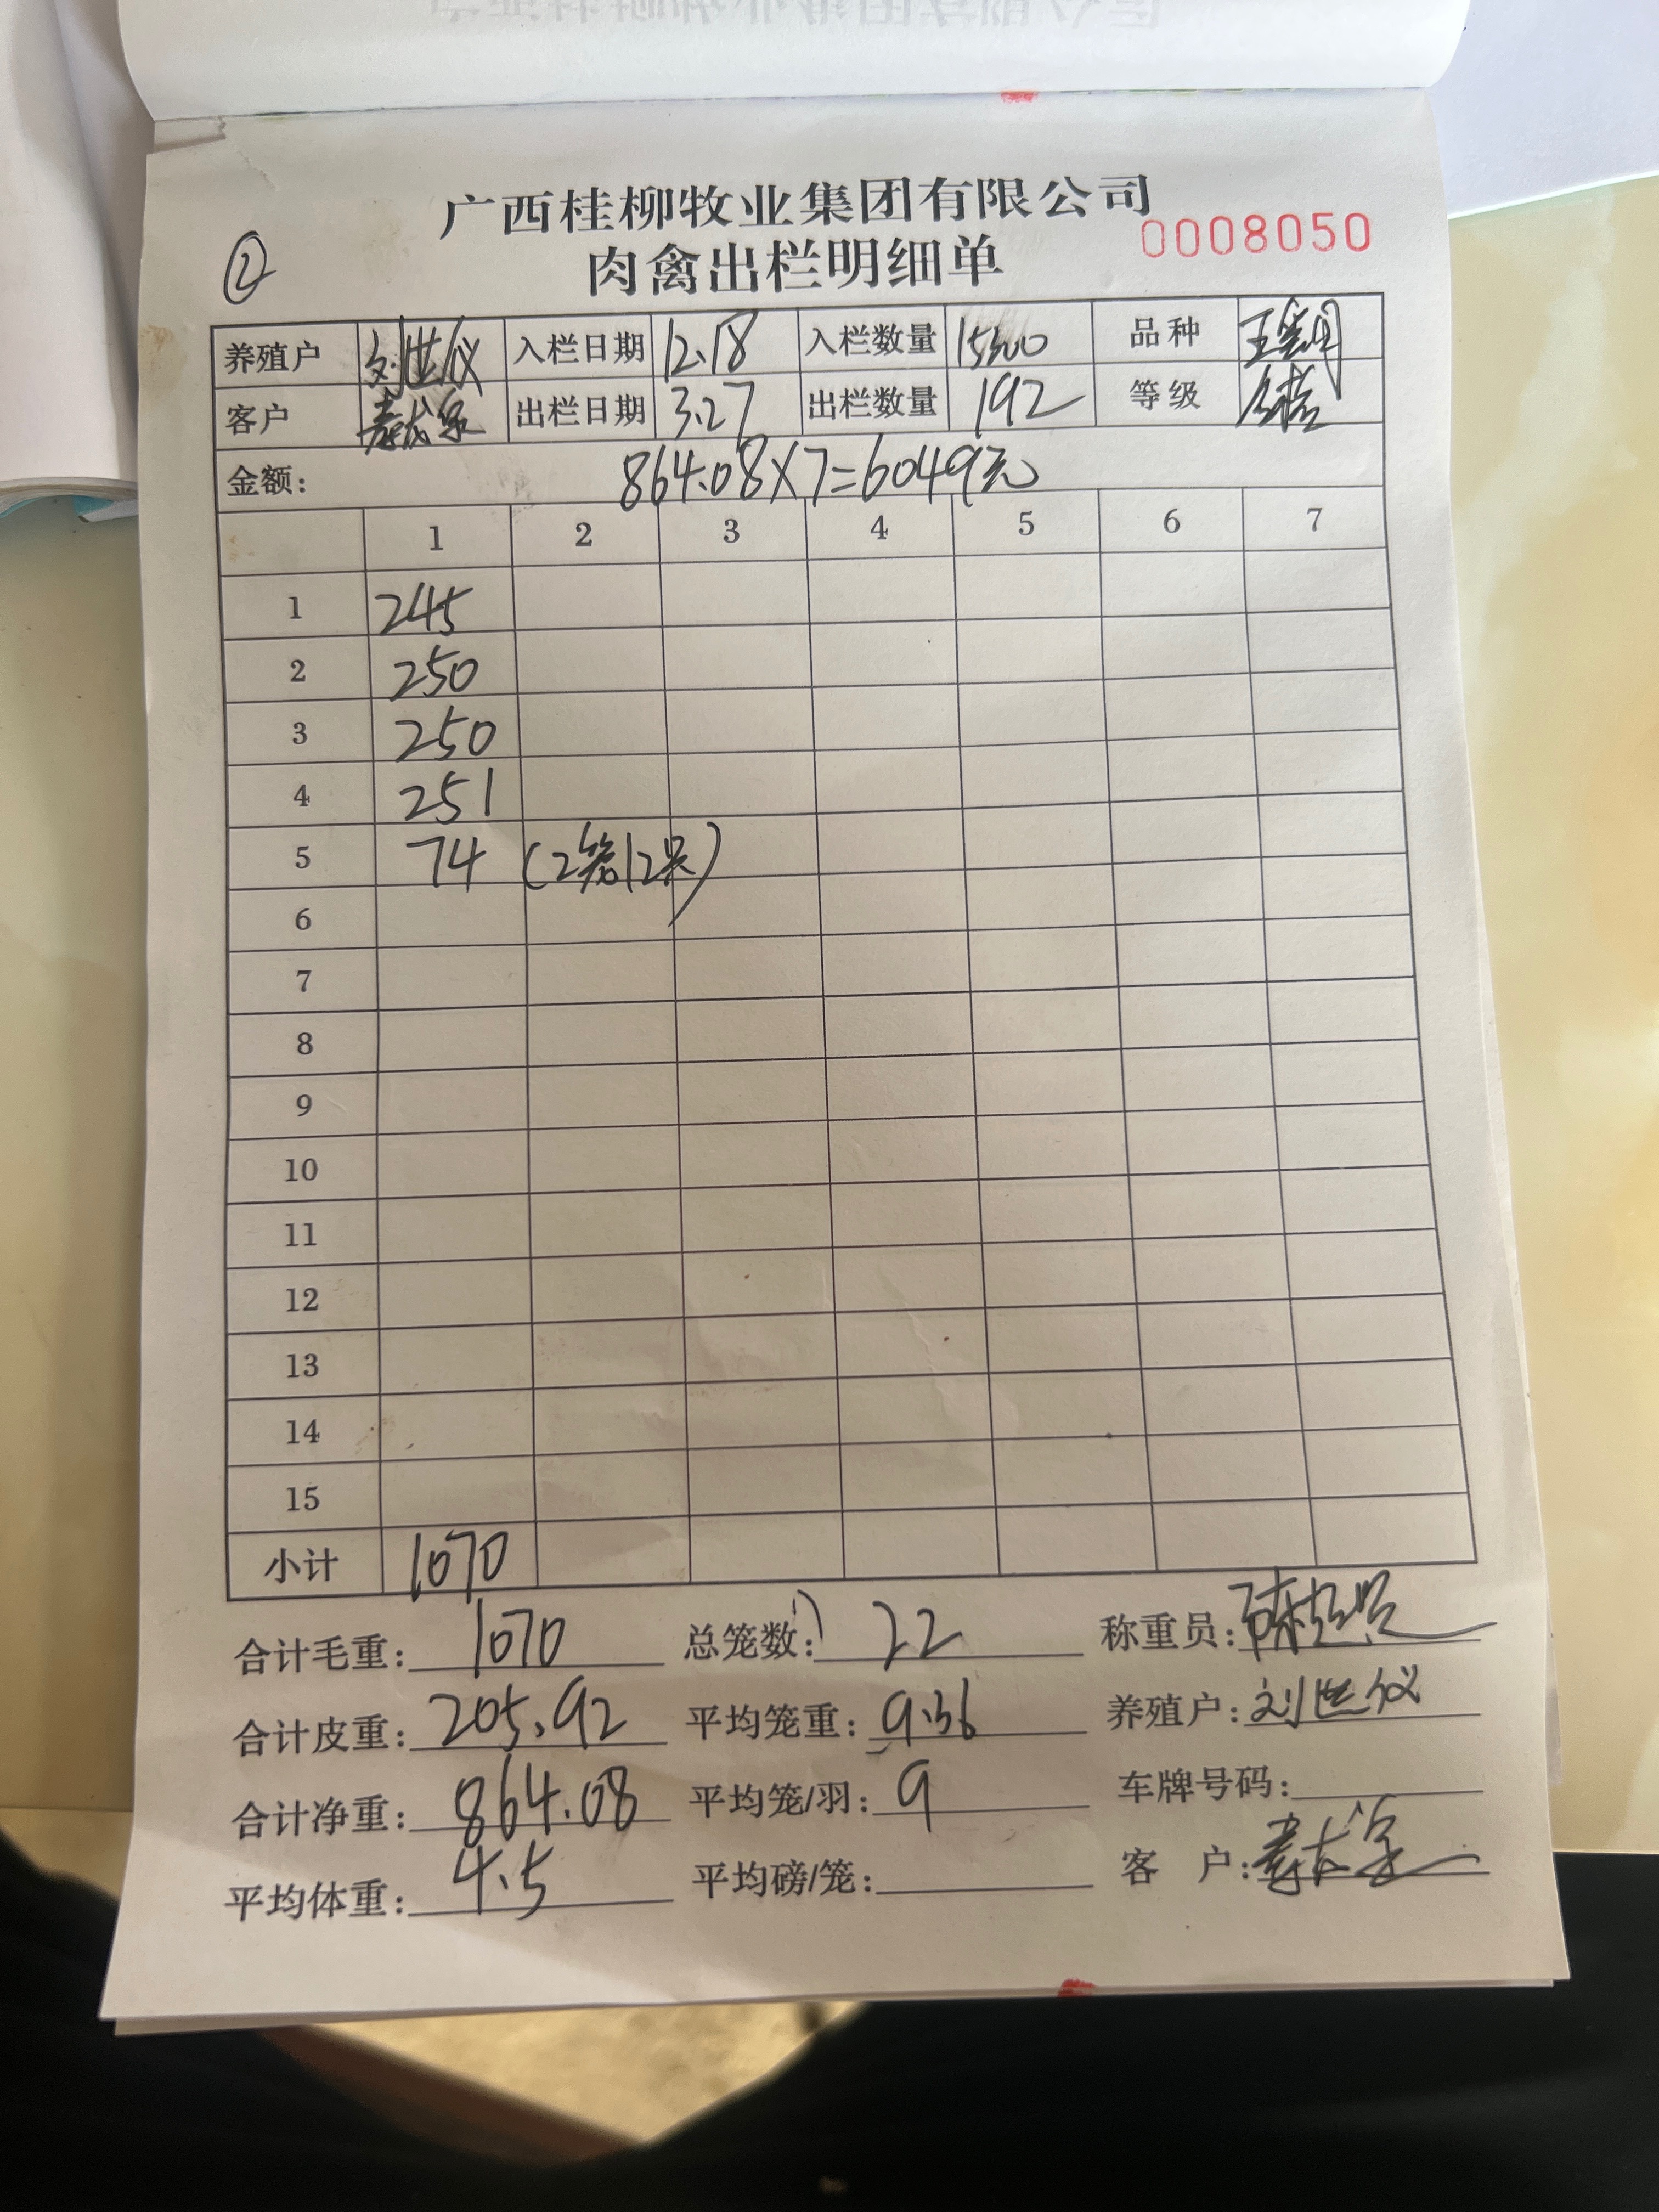 广西桂柳牧业集团有限公司
② 肉禽出栏明细单 0008050
养殖户 刘世仪 入栏日期 12.18 入栏数量 15300 品种
客户 出栏日期 3.27 出栏数量 192 等级
金额: 864.08×7=6049元
1 2 3 4 5 6 7
1 245
2 250
3 250
4 251
5 74 (2笼12只)
6
7
8
9
10
11
12
13
14
15
小计 1070
合计毛重: 1070 总笼数: 22 称重员:
合计皮重: 205.92 平均笼重: 9.36 养殖户: 刘世仪
合计净重: 864.08 平均笼/羽: 9 车牌号码:
平均体重: 4.5 平均磅/笼: 客户: